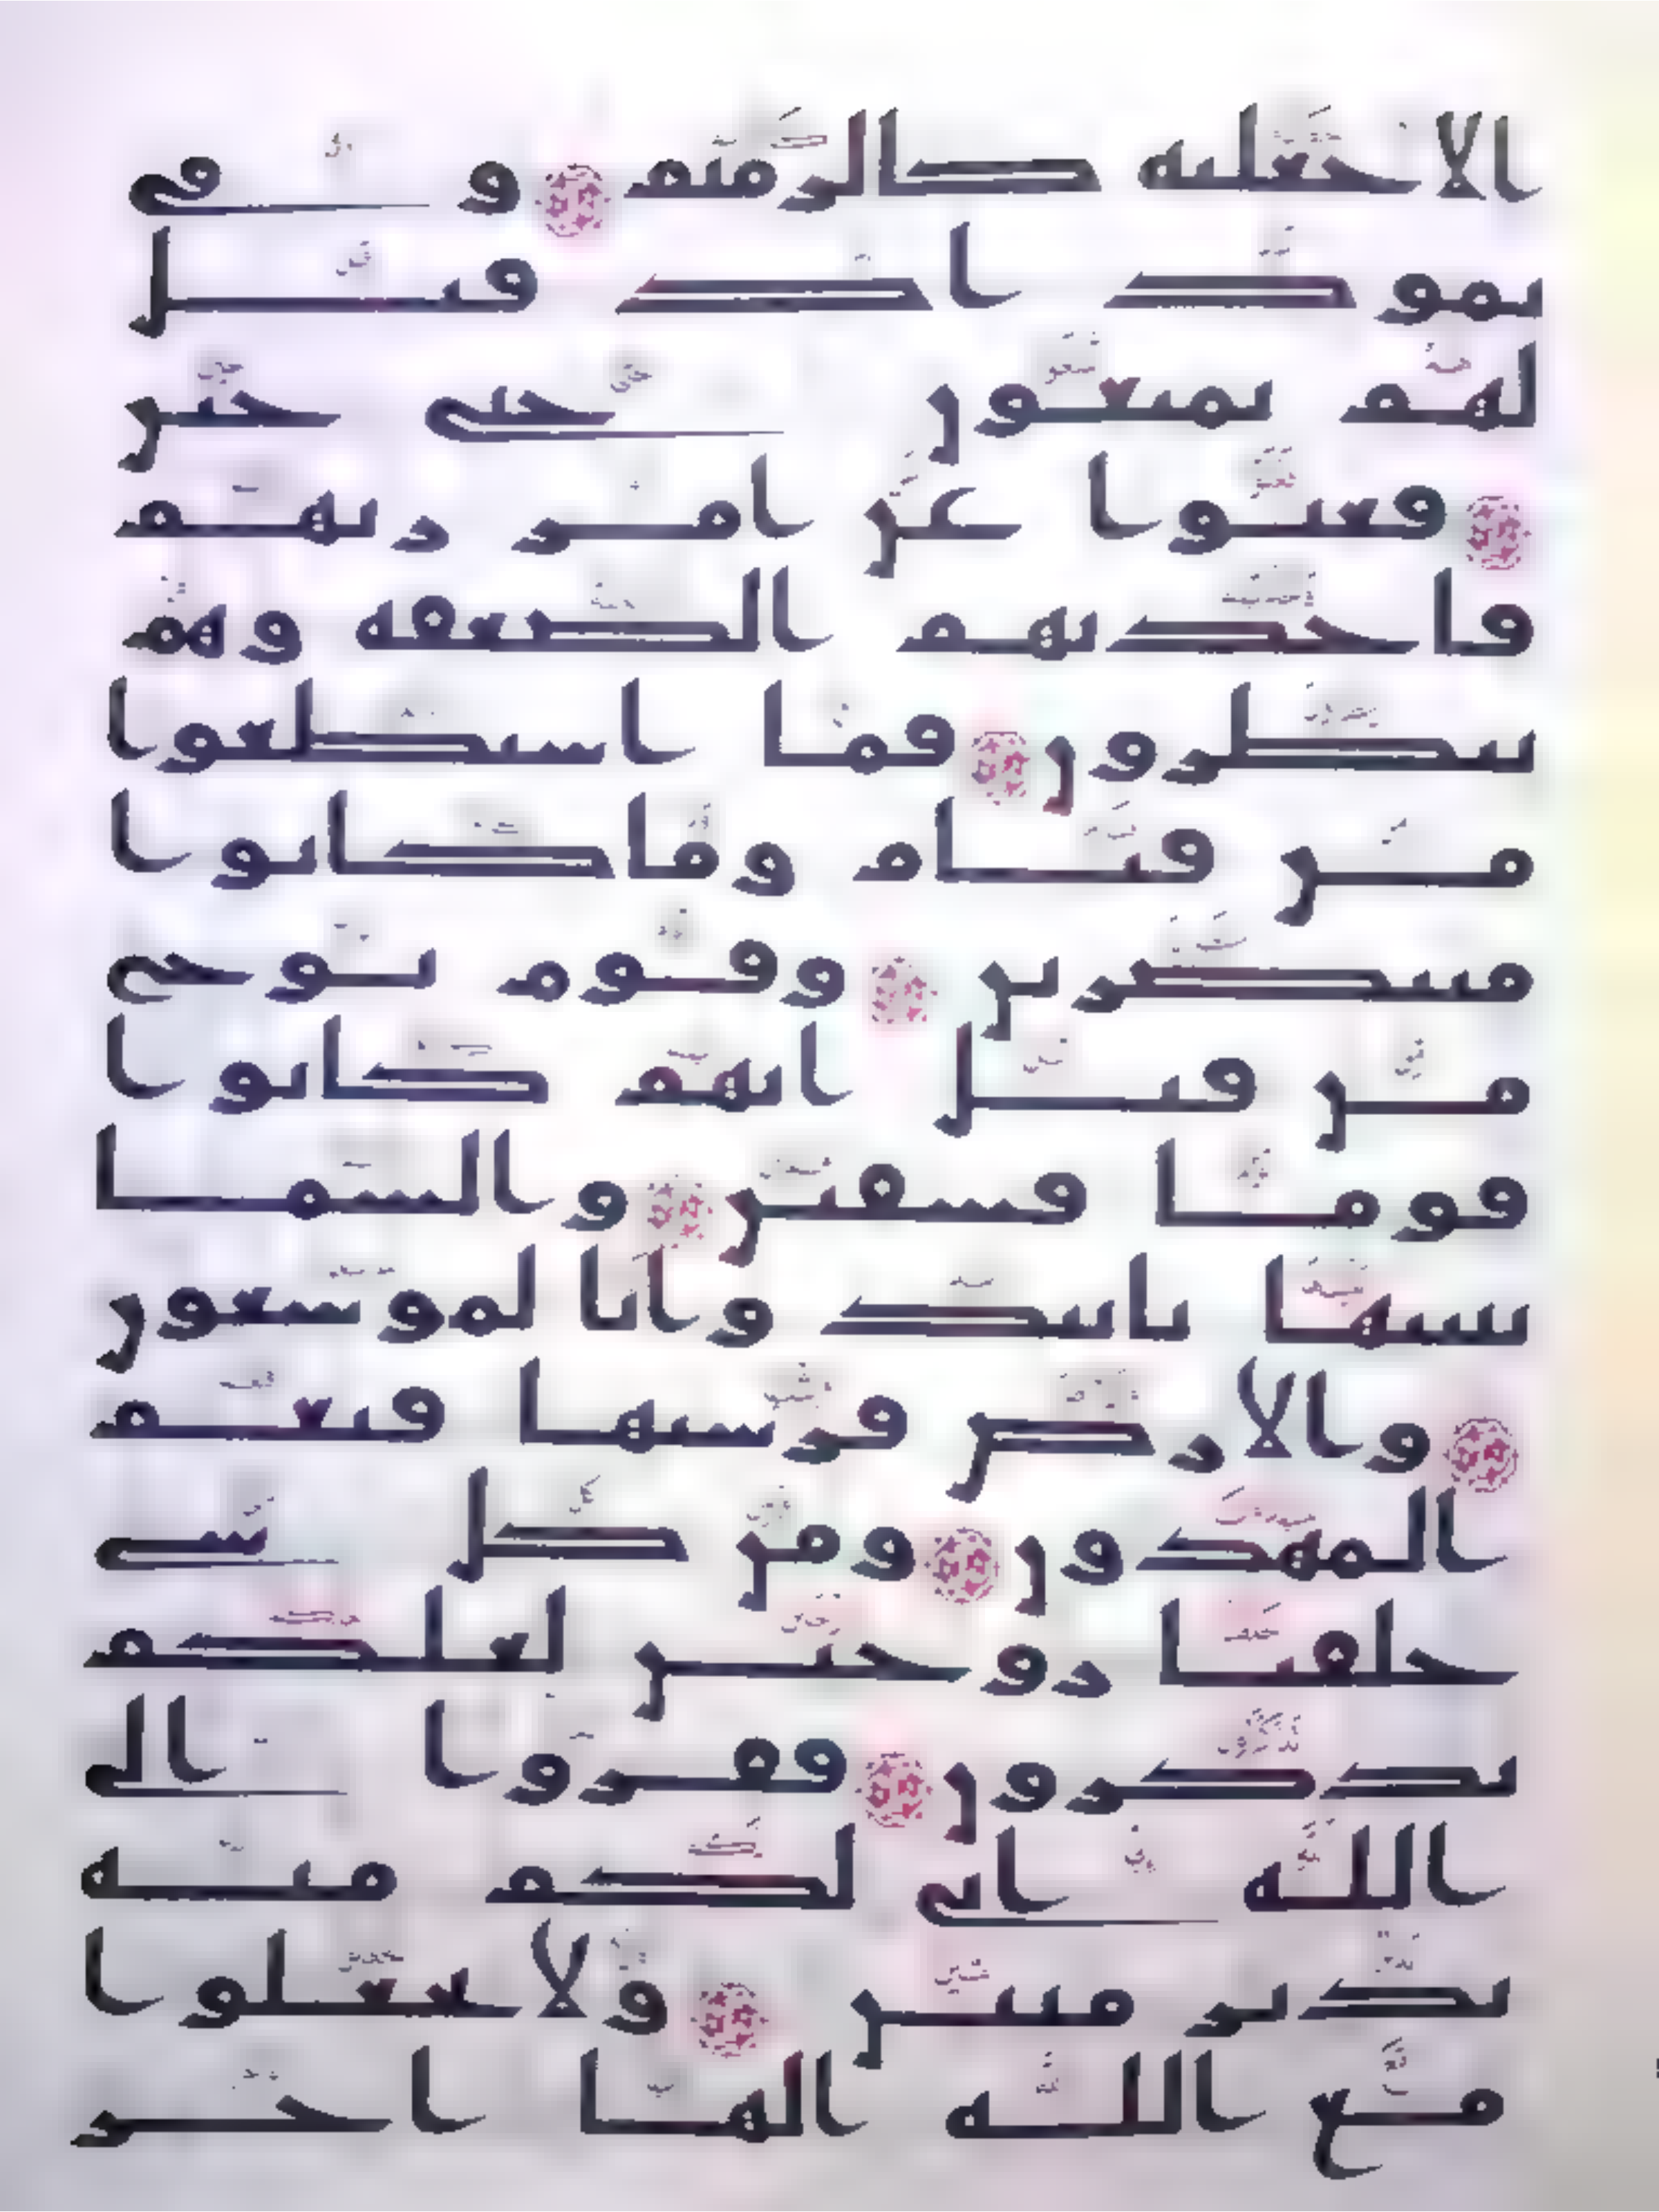 الا جعلته كالرميم وفي
ثمود اذ قيل
لهم تمتعون حتى حين
فعتوا عن امر ربهم
فاخذتهم الصعقه وهم
ينظرون فما استطعوا
من قيام وما كانوا
منتصرين وقوم نوح
من قبل انهم كانوا
قوما فسقين والسما
بنينها باييد وانا لموسعون
والارض فرشنها فنعم
المهدون ومن كل شي
خلقنا زوجين لعلكم
تذكرون ففروا الى
الله اني لكم منه
نذير مبين ولا تجعلوا
مع الله الها اخر